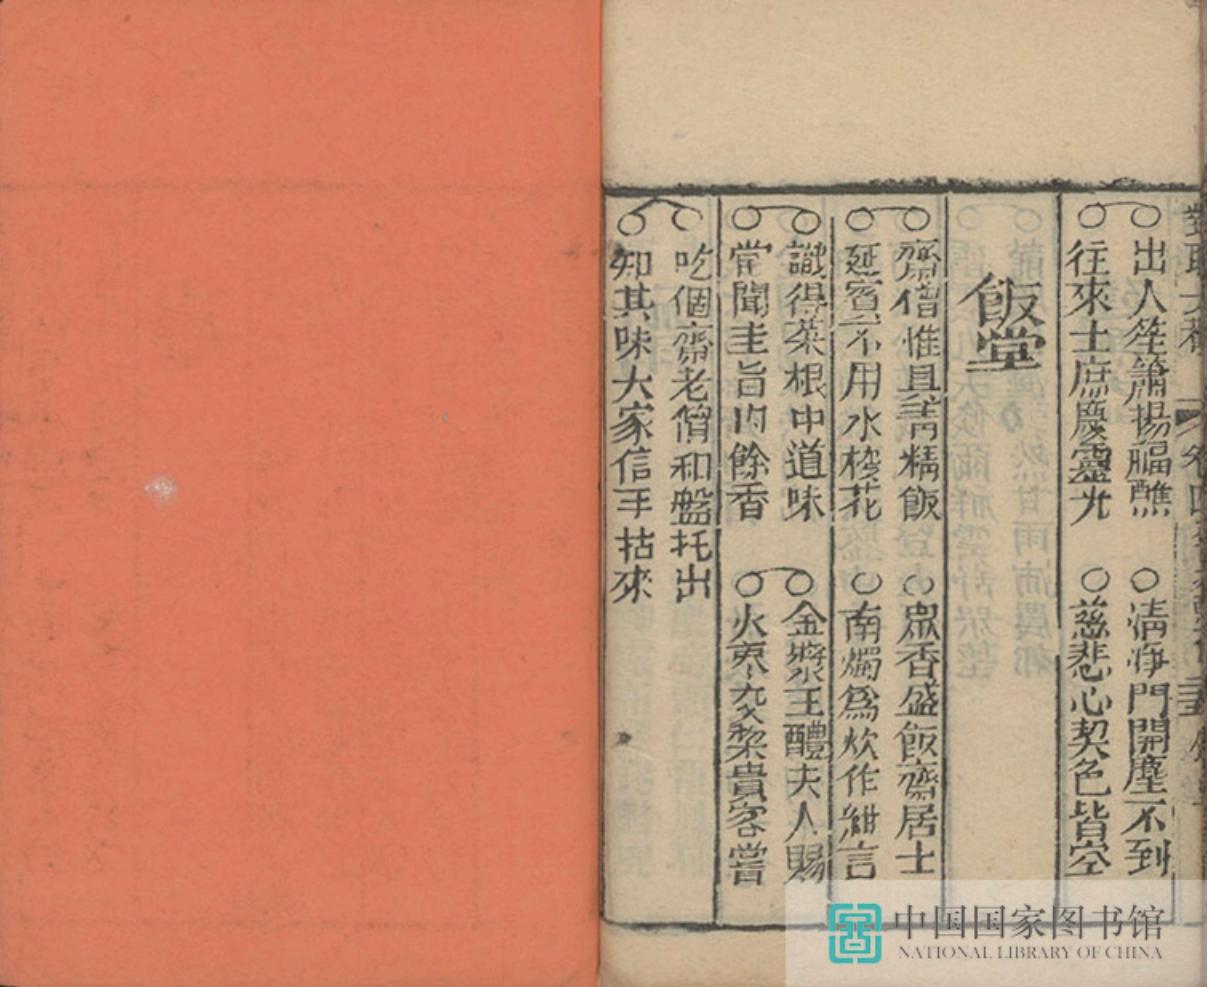 出人笙簫揚福醮
往來士庶慶靈光
清淨門開塵不到
慈悲心契色皆空
飯堂
齋僧惟具菁精飯
延賓不用水梭花
眾香盛飯齋居士
南燭為炊作紺言
識得菜根中道味
當聞圭旨內餘香
金漿王醴夫人賜
火棗交梨貴客嘗
吃個齋老僧和盤托出
知其味大家信手拈來
中国国家图书馆
NATIONAL LIBRARY OF CHINA